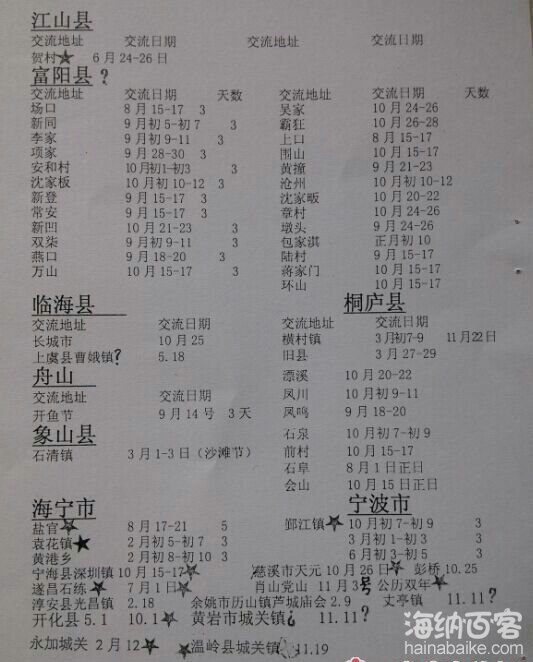 江山县
交流地址 交流日期 交流地址 交流日期
贺村☆ 6月24-26日
富阳县?
交流地址 交流日期 天数 交流地址 交流日期 天数
场口 8月15-17 3 吴家 10月24-26
新同 9月初5-初7 3 霸狂 10月26-28
李家 9月初9-11 上口 8月15-17
项家 9月28-30 3 围山 10月15-17
安和村 10月初1-初3 黄撞 9月21-23
沈家板 10月初10-12 3 沧州 10月初10-12
新登 9月15-17 3 沈家畈 10月20-22
常安 9月15-17 3 章村 10月24-26
新凹 10月21-23 3 墩头 9月24-26
双柒 9月初9-11 3 包家淇 正月初10
燕口 9月18-20 3 陆村 9月15-17
万山 10月15-17 3 蒋家门 10月15-17
环山 10月15-17
临海县 桐庐县
交流地址 交流日期 交流地址 交流日期
长城市 10月25 横村镇 3月初7-9 11月22日
上虞县曹娥镇? 5.18 旧县 3月27-29
舟山 漂溪 10月20-22
交流地址 交流日期 凤川 10月初9-11
开鱼节 9月14号 3天 凤鸣 9月18-20
象山县 石泉 10月初7-初9
石清镇 3月1-3日(沙滩节) 前村 10月15-17
石阜 8月1日正日
会山 10月15日正日
海宁市 宁波市
盐官☆ 8月17-21 5 鄞江镇★ 10月初7-初9 3
袁花镇★ 2月初5-初7 3 3月初1-初3 3
黄港乡 2月初8-初10 3 6月初3-初5 3
宁海县深圳镇 10月15-17☆ 慈溪市天元 10月26日☆ 彭桥 10.25
遂昌石练★ 7月1日☆ 肖山党山 11月3号 公历双年★
淳安县光昌镇 2.18 余姚市历山镇芦城庙会 2.9 丈亭镇 11.11?
开化县 5.1 10.1☆ 黄岩市城关镇? 11.11?
永加城关 2月12☆ 温岭县城关镇 11.19
海纳百客
hainabaike.com